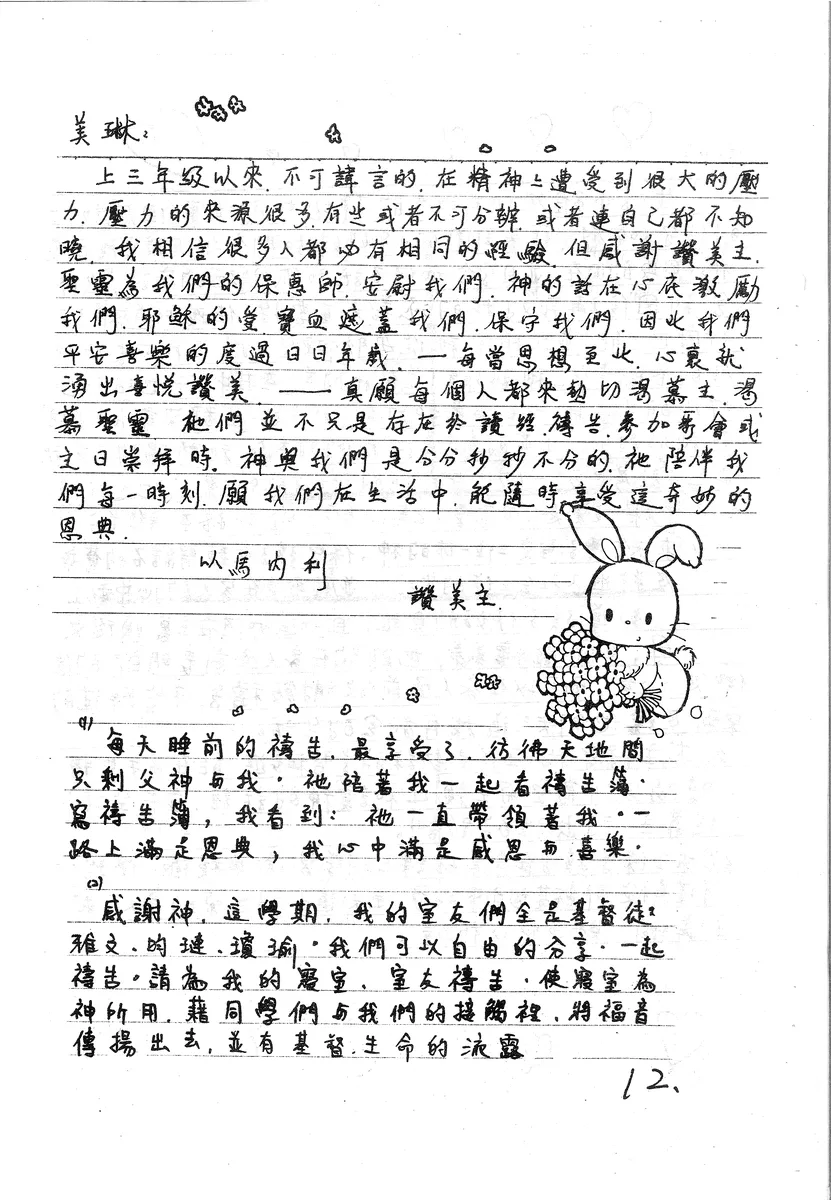 美琳:
上三年級以來,不可諱言的,在精神上遭受到很大的壓
力,壓力的來源很多,有些或者不可分辦,或者連自己都不知
曉,我相信很多人都有相同的經驗,但感謝讚美主,
聖靈為我們的保惠師,安慰我們,神的話在心底激勵
我們,耶穌的愛寶血遮蓋我們,保守我們,因此我們
平安喜樂的度過日日年歲,—每當思想至此,心裏就
湧出喜悅讚美,——真願每個人都來熱切渴慕主,渴
慕聖靈 祂們並不只是存在於讀經,禱告,參加聚會或
主日崇拜時,神與我們是分分秒秒不分的,祂陪伴我
們每一時刻,願我們在生活中,能隨時享受這奇妙的
恩典.
以馬內利
讚美主.
(1)
每天睡前的禱告,最享受了,彷彿天地間
只剩父神与我。祂陪著我一起看禱告簿,
寫禱告簿,我看到:祂一直帶領著我。一
路上滿足恩典,我心中滿是感恩与喜樂.
(2)
感謝神,這學期,我的室友們全是基督徒:
雅文、均璉、瓊瑜。我們可以自由的分享,一起
禱告。請為我的寢室,室友禱告,使寢室為
神所用,藉同學們与我們的接觸裡,將福音
傳揚出去,並有基督生命的流露
12、